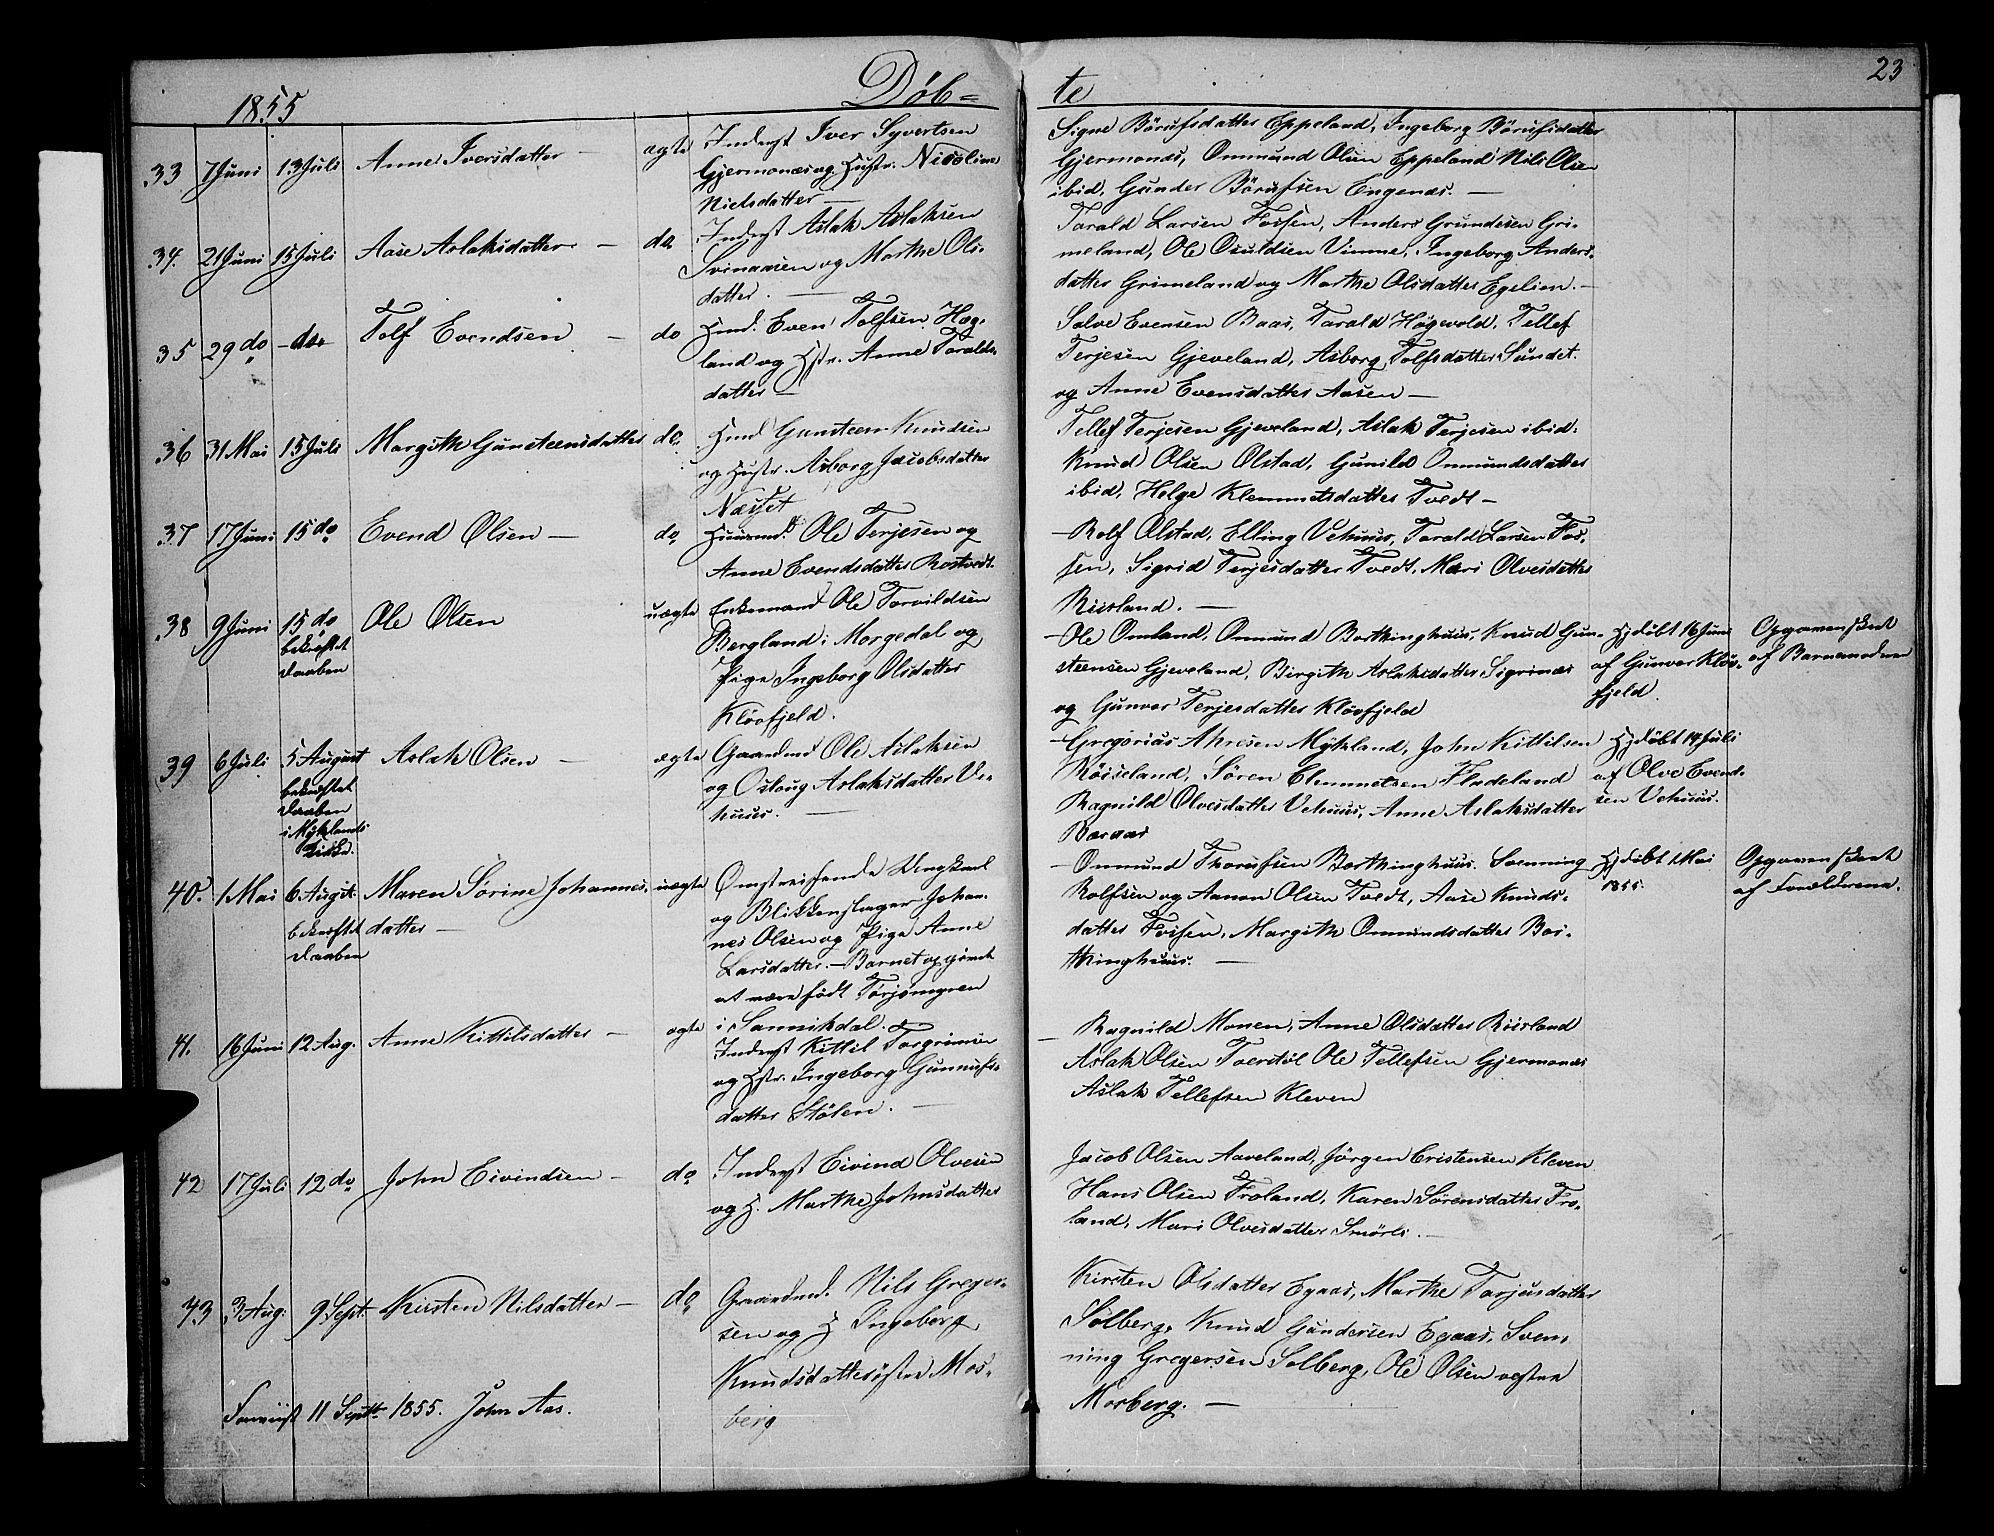 1855 Døb= te 23
33 7 Juni 13 Juli Anne Iversdatter – ægte Inderst Iver Syvertsen
Gjermonæs og Hustr. Nicoline
Nielsdatter —
Signe Börufsdatter Eppeland, Ingeborg Börufsdatter
Gjermonæs, Onmund Olsen Eppeland Nils Olsen
ibid, Gunder Börufsen Engenæs. —
34. 21 Juni 15 Juli Aase Aslaksdatter – do Inderst Aslak Aslaksen
Svinaasen og Marthe Ols-
datter. —
Tarald Larsen Fossen, Anders Grundesen Gri-
meland, Ole Osuldsen Vimme, Ingeborg Anders-
datter Grimeland og Marthe Olsdatter Egelien.—
35 29 do – do Tolf Evendsen – do Hmd. Even Tolfsen Hæg-
land og Hstr. Anne Taralds-
datter –
Salve Evensen Baas, Tarald Högevold, Tellef
Terjesen Gjeveland, Asborg Tolfsdatter Sundet.
og Anne Evensdatter Aasen —
36 31 Mai 15 Juli Margith Gunsteensdatter do. Hmd Gunsteen Knudsen
og Hustr. Asborg Jacobsdatter
Næsset
Tellef Terjesen Gjeveland, Aslak Terjesen ibid:
Knud Olsen Ølstad, Gunild Onmundsdatter
ibid, Helge Klemmetsdatter Tvedt —
37 17 Juni 15 do Evend Olsen — do Huusmd. Ole Terjesen og
Anne Evendsdatter Rostvedt.
– Rolf Ølstad, Elling Vehuus, Tarald Larsen Fos-
sen, Sigrid Terjesdatter Tvedt, Mari Olvesdatter
Risland. —
38 9 Juni 15 do Ole Olsen uægte Enkemand Ole Torvildsen
bekræftet
Daaben
Bergland i Morgedal og
Pige Ingeborg Olsdatter
Klövfjeld.
– Ole Omland, Onmund Borthinghuus, Knud Gun-
steensen Gjeveland, Birgith Aslaksdatter Sigrinæs
og Gunvor Terjesdatter Klövfjeld
Hjdöbt 16 Juni
af Gunvor Klöv-
fjeld.
Opgaven skeet
af Barnemoderen
39 6 Juli 5 August Aslak Olsen – ægte Gaardmd Ole Aslaksen
bekræftet
Daaben
i Myklands
Kirke.
og Oslaug Aslaksdatter Ve-
huus. —
– Gregorius Ahresen Mykland, John Kittilsen
Röiseland, Sören Clemmetsen Fladeland
Ragnild Olvesdatter Vehuus, Anne Aslaksdatter
Bæraas
Hjdöbt 14 Juli
af Olve Evend-
sen Vehuus.
40. 1 Mai 6 August Maren Sorine Johannes- uægte Omstreifende Ungkarl
bekræftet datter —
Daaben
og Blikkenslager Johan-
nes Olsen og Pige Anne
Larsdatter. – Barnet opgivet
at være född Torjömyren
i Sannikdal.
– Onmund Thorufsen Borthinghuus. Svenning
Rolfsen og Aanon Olsen Tvedt, Aase Knuds-
datter Fossen, Margith Onmundsdatter Bor-
thinghuus. —
Hjdöbt 1 Mai
1855.
Opgaven skeet
af Forældrene.
41. 16 Juni 12 Aug. Anne Kittilsdatter – ægte Inderst Kittil Torgrimsen
og Hstr. Ingeborg Gunnufs-
datter Stölen. —
– Ragnild Monen, Anne Olsdatter Risland
Aslak Olsen Tverstöl Ole Tellefsen Gjermonæs
Aslak Tellefsen Kleven
42 17 Juli 12 do John Eivindsen – do Inderst Eivind Olvesen
og H. Marthe Johnsdatter
Jacob Olsen Aaveland, Jörgen Cristensen Kleven
Hans Olsen Froland, Karen Sörensdatter Fro-
land, Mari Olvesdatter Smörli. —
43 3 Aug. 9 Sept. Kirsten Nilsdatter – do Gaardmd. Nils Greger-
sen og H Ingeborg
Knudsdatter öster Mos-
berg
Kirsten Olsdatter Egaas, Marthe Tarjesdatter
Solberg, Knud Gundersen Egaas, Sven-
ning Gregersen Solberg, Ole Olsen vestre
Mosberg. —
Forevist 11 Septb 1855. John Aas.